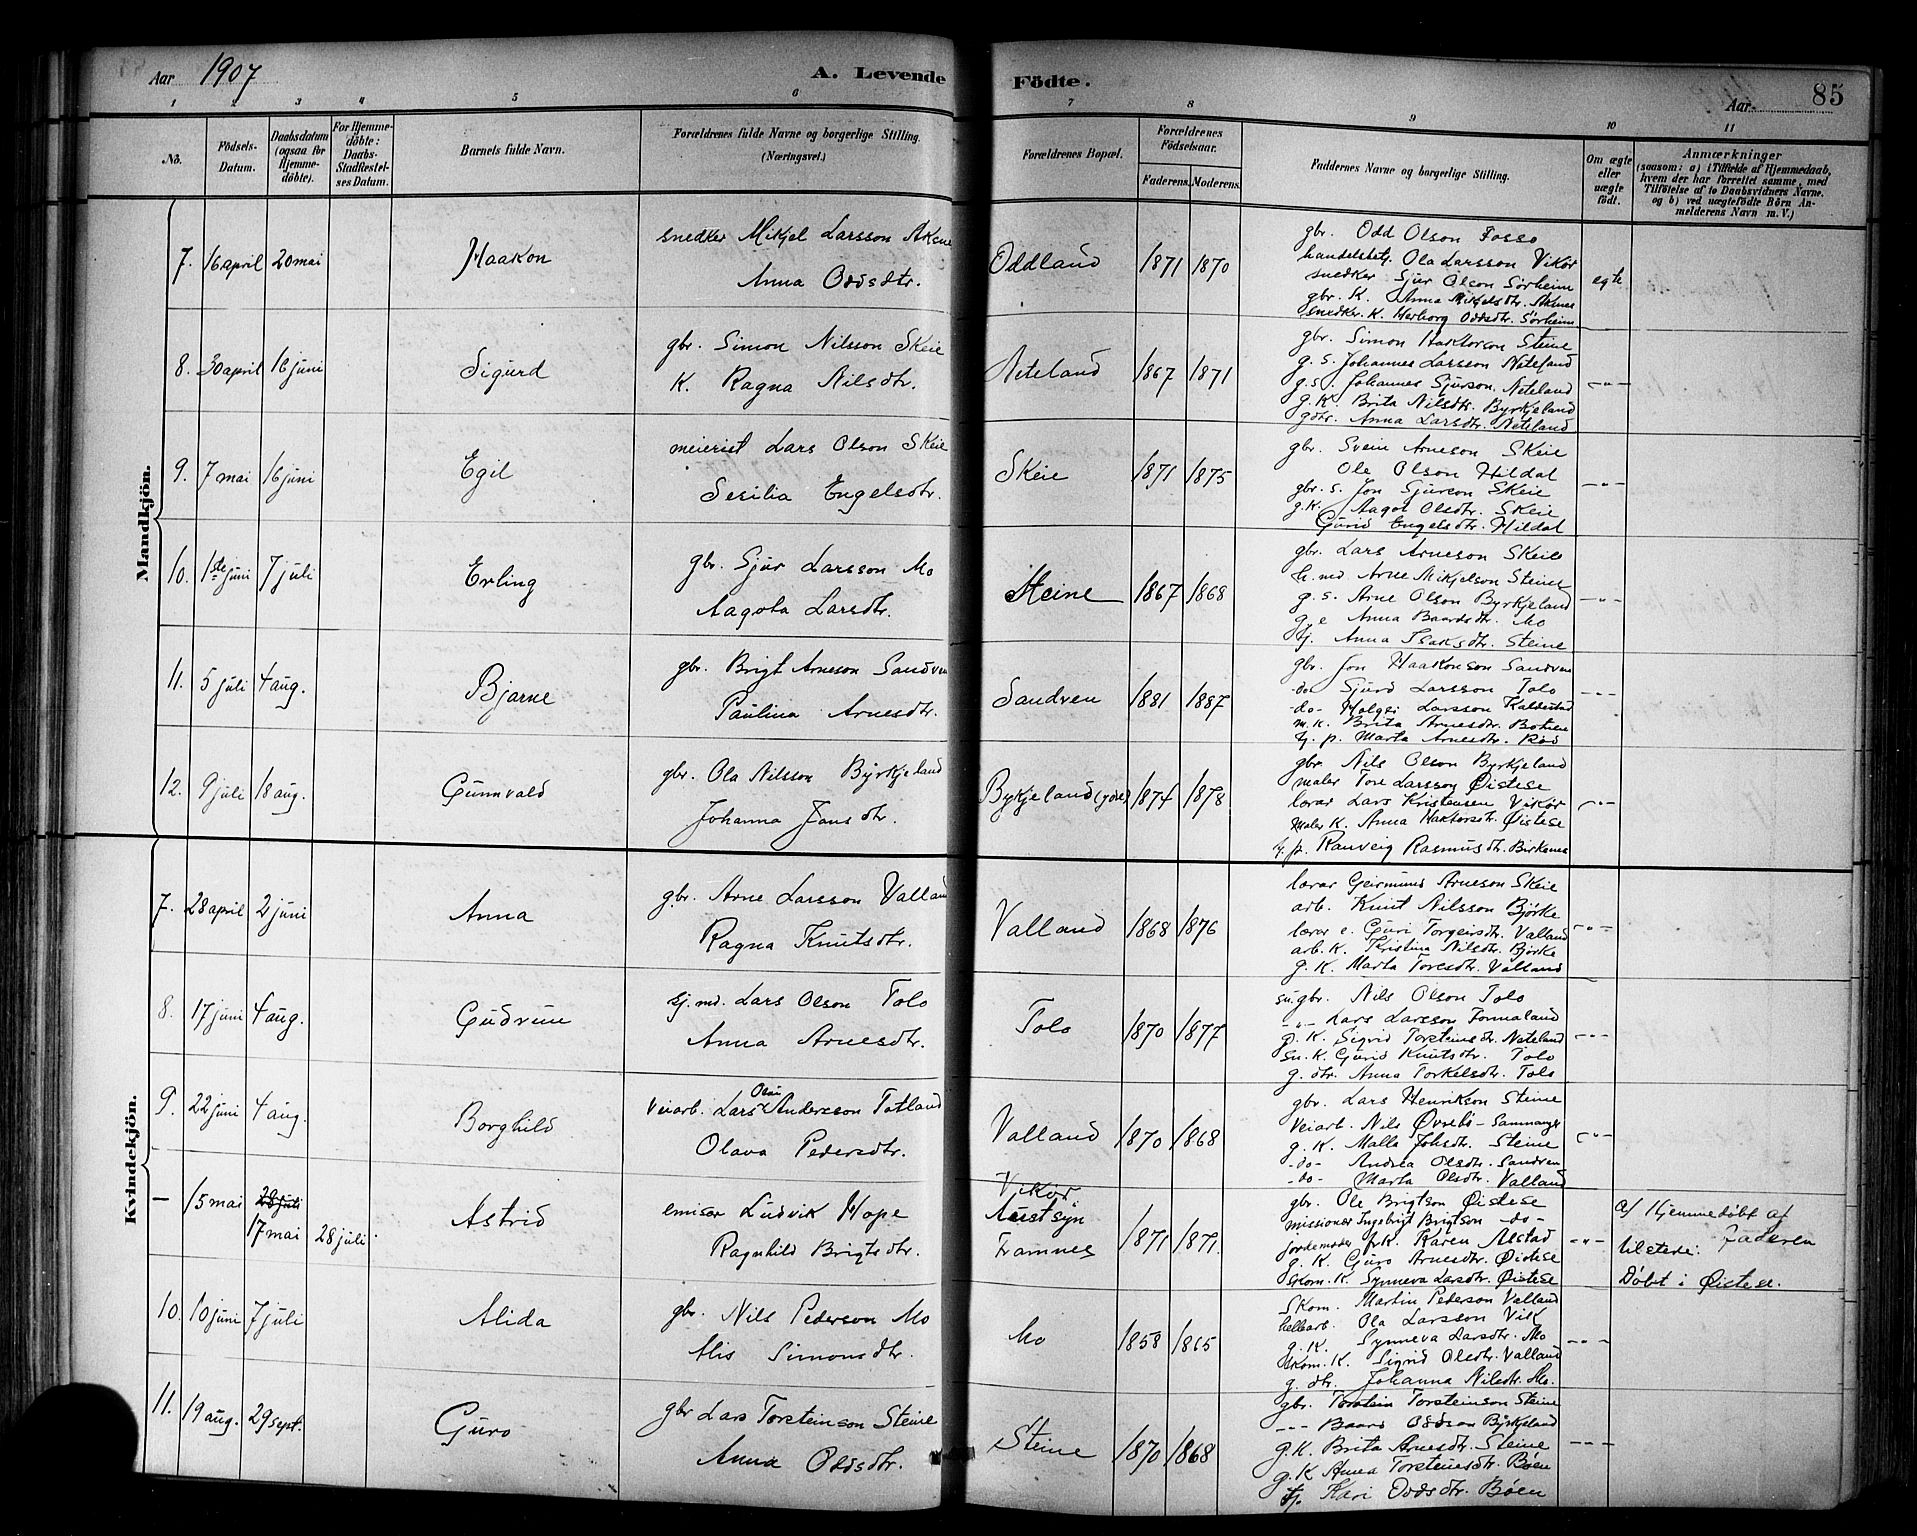 Aar 1907
A. Levende
Födte.
Aar
85
1 2 3 4 5 6 7 8 9 10 11
No.
Födsels-
Datum.
Daabsdatum
(ogsaa for
Hjemme-
döbte).
For Hjemme-
döbte:
Daabs-
Stadfæstel-
ses Datum.
Barnets fulde Navn.
Forældrenes fulde Navne og borgerlige Stilling.
(Næringsvei.)
Forældrenes Bopæl.
Forældrenes
Födselsaar.
Faderens. Moderens.
Faddernes Navne og borgerlige Stilling.
Om ægte
eller
uægte
födt.
Anmærkninger
(saasom: a) i Tilfælde af Hjemmedaab,
hvem der har forrettet samme, med
Tilföielse af to Daabsvidners Navne,
og b) ved uægtefödte Börn An-
melderens Navn m. V.)
Mandkjön.
7. 16 april 20 mai Haakon
snedker Mikjel Larsson Aksne
Anna Oddsdtr.
Oddland 1871 1870
gbr. Odd Olson Fosso
handelsbetj. Ola Larsson Vikør
snedker Sjur Olson Sørheim
gbr. K. Anna Mikjelsdtr. Aksnes
snedker. K. Herborg Oddsdtr. Sørheim
egte
8. 30 april 16 juni Sigurd
gbr. Simon Nilsson Skeie
K. Ragna Nilsdtr.
Neteland 1867 1871
gbr. Simon Haktorson Steine
g. s. Johannes Larsson Neteland
g.s. Johannes Sjurson. Neteland
g.K. Brita Nilsdtr. Byrkjeland
gdtr. Anna Larsdtr. Neteland
-"-
9. 7 mai 16 juni Egil
meierist Lars Olson Skeie
Sesilia Engelsdtr.
Skeie 1871 1875
gbr. Svein Arneson Skeie
Ole Olson Hildal
gbr. s. Jon Sjurson Skeie
g.K. Aagot Olsdtr. Skeie
Gurid Engelsdtr. Hildal
-"-
10. 1ste juni 7 juli Erling
gbr. Sjur Larsson Mo
Aagota Larsdtr.
Steine 1867 1868
gbr. Lars Arneson Skeie
h.md. Arne Mikjelson Steine
g. s. Arne Olson Byrkjeland
g. e Anna Baardsdtr. Mo
tj. Anna Isaksdtr. Steine
-"-
11. 5 juli 4 aug. Bjarne
gbr. Brigt Arneson Sandven
Paulina Arnesdtr.
Sandven 1881 1887
gbr. Jon Haakonson Sandven
-do Sjurd Larsson Tolo
-do- Holger Larsson Kaldestad
m.K. Brita Arnesdtr. Botnen
tj. p. Marta Arnesdtr. Rød
-"-
12. 9 juli 18 aug. Gunnvald
gbr. Ola Nilsson Byrkjeland
Johanna Jonsdtr.
Bykjeland (ydre) 1874 1878
gbr. Nils Olson Byrkjeland
maler Tore Larsson Øistese
lærar Lars Kristensen Vikør
Maler K. Anna Haktorsdtr. Øistese
tj. p. Ranveig Rasmusdtr. Birkenes
-"-
Kvindekjön.
7. 28 april 2 juni Anna
gbr. Arne Larsson Valland
Ragna Knutsdtr.
Valland 1868 1876
lærar Geirmund Arneson Skeie
arb. Knut Nilsson Bjørke
lærar e. Guri Torgeirsdtr. Valland
arb. K. Kristina Nilsdtr. Bjørke
g. K. Marta Toresdtr. Valland
-"-
8. 17 juni 4 aug. Gudrun
sj. md. Lars Olson Tolo
Anna Arnesdtr.
Tolo 1870 1877
su. gbr. Nils Olson Tolo
-"- Lars Larsson Fonnaland
g. K. Sigrid Torsteinsdtr. Neteland
su. K. Gurid Knutsdtr. Tolo
g. dtr. Anna Torkelsdtr. Tolo
-"-
9. 22 juni 4 aug. Borghild
Veiarb. Lars Andersson Tatland
Olava Pedersdtr.
Valland 1870 1868
gbr. Lars Henrikson Steine
Veiarb. Nils Øvrebø - Samnanger
g. K. Malla Johsdtr. Steine
-do- Andrea Olsdtr. Sandven
-do- Marta Olsdtr. Valland
-"-
- 15 mai 28 juli
17 mai 28 juli Astrid
emisær Ludvik Hope
Ragnhild Brigtsdtr.
Vikør
Framnes 1871 1871.
gbr. Ole Brigtson Øistese
missionær Ingebrigt Brigtson -do-
Jordemoder frk. Karen Alstad
g. K. Guro Arnesdtr. Øistese
skom. K. Synneva Larsdtr. Øistese
-"-
a/ Hjemmedøbt af
Faderen
tilstede:
Døbt i Øistese.
10. 10 juni 7 juli Alida
gbr. Nils Pederson Mo
Alis Simonsdtr.
Mo 1858 1865
Skom. Martin Pederson Valland
hellearb. Ola Larsson Vik
g. K. Synneva Larsdtr. Mo
Skom. K. Sigrid Olsdtr. Valland
g. dtr. Johanna Nilsdtr. Mo.
-"-
11. 19 aug. 29 sept. Guro
gbr Lars Torsteinson Steine
Anna Oddsdtr.
Steine 1870 1868
gbr. Torstein Torsteinson Steine
-"- Baard Oddson Byrkjeland
g. K. Brita Arnesdtr. Steine
g. K Anna Torsteinsdtr. Bøen
tj. Kari Oddsdtr. Bøen
-"-